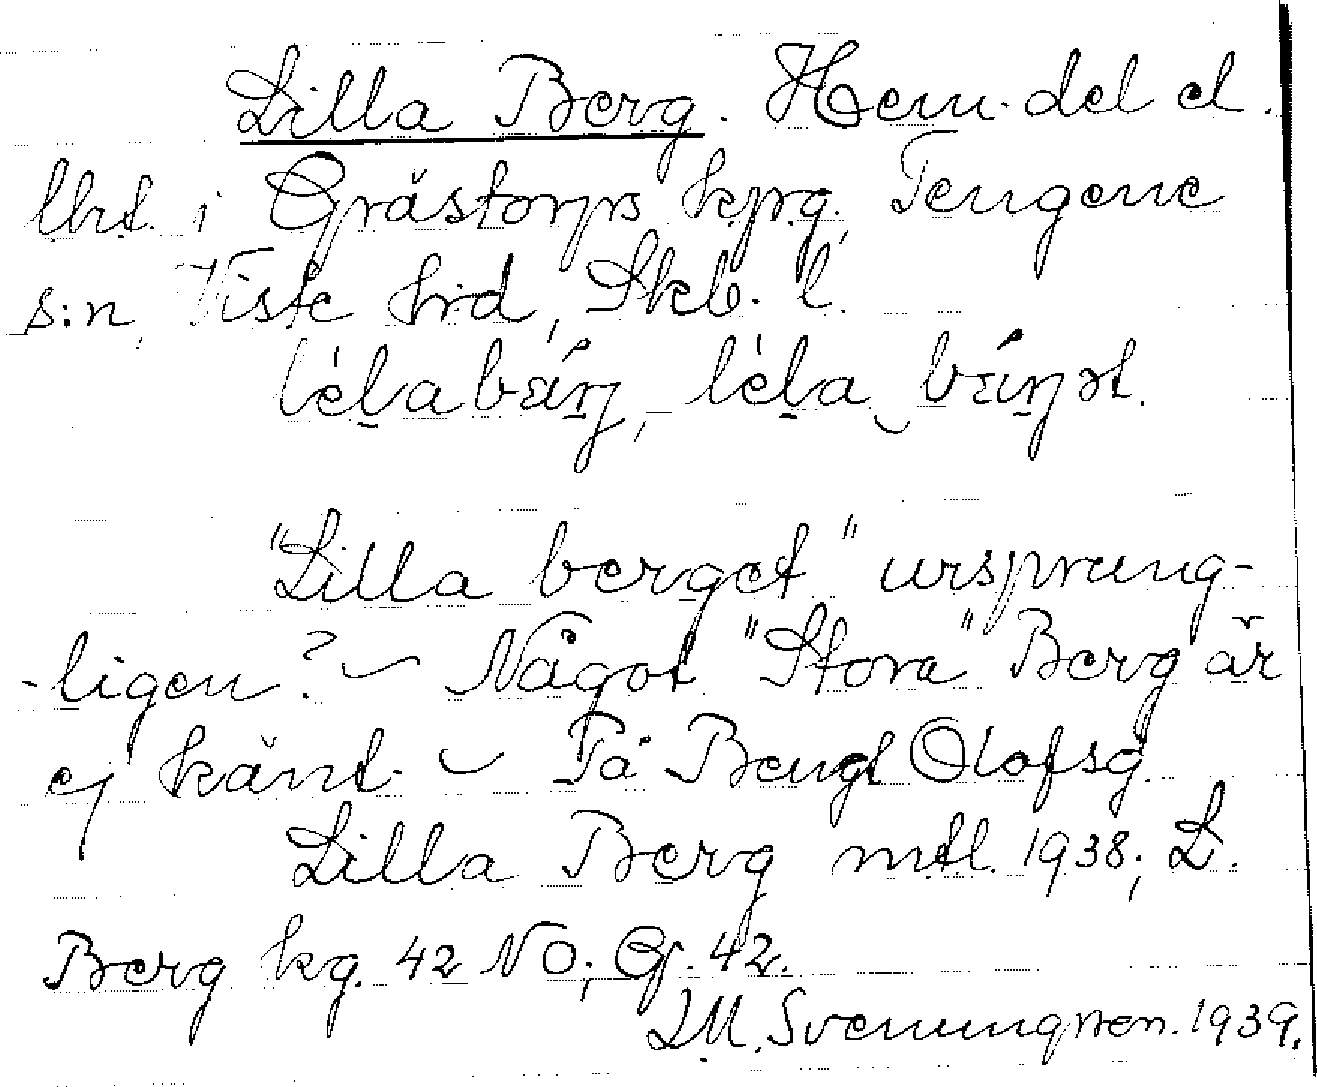 Lilla Berg. Hem. del el.
lht. i Grästorps kpg, Tengene
s:n, Viste hrd, Skb. l.
"Lilla berget" ursprung-
-ligen? – Något "Stora" Berg är
ej känt. – På Bengt Olofsg.
Lilla Berg mtl. 1938; L.
Berg kg. 42 NO; Gf. 42.
I.M. Svenungsson. 1939.